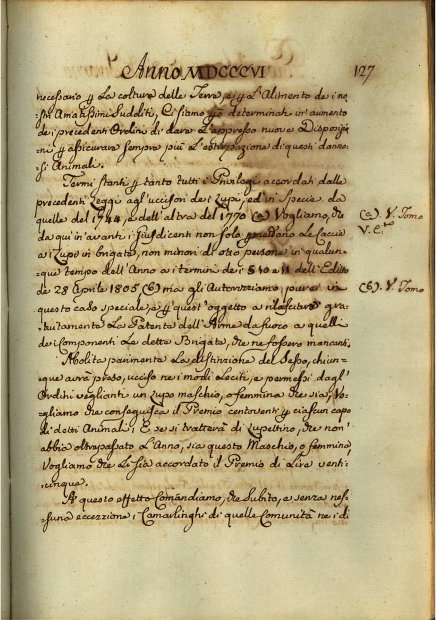 Anno MDCCCVI
127
necessario p La coltura delle Terre, e p L'Alimento dei no=
=stri Amatissimi Sudditi, Ci siamo p ciò determinati in aumento
dei precedenti Ordini di dare L'appresso nuove Disposizio=
=ni p assicurare sempre più L'estirpazione di questi danno=
=si Animali.
Fermi stanti p tanto tutti i Privilegi accordati dalle
precedenti Leggi agl'uccisori dei Lupi, ed in Specie da
quelle del 1744, e dell'altra del 1770 (a) Vogliamo, che
da qui in avanti i Giusdicenti non solo promettano Le Cacce
ai Lupi in brigata, non minori di otto persone in qualun=
=que tempo dell'Anno a termini dei § 10 e 11 dell'Editto
de 28 Aprile 1805 (b) ma gli Autorizziamo pure in
questo caso speciale, e p quest'oggetto a rilasciare gra=
=tuitamente La Patente dell'Arme da fuoco a quelli
dei Componenti Le dette Brigate, che ne fossero mancanti.
Abolita parimente La distinzione del Sesso, chiun=
=que avrà preso, ucciso nei modi Leciti, e permessi dagl'
Ordini veglianti un Lupo maschio, o femmina che sia, Vo=
=gliamo che conseguisca il Premio di p ciascun capo
di detti Animali; E se si tratterà di Lupettino, che non
abbia oltrepassato L'Anno, sia questo Maschio, o femmina,
Vogliamo che Li sia accordato il Premio di Lire venti=
=cinque.
A questo effetto Comandiamo, che Subito, e senza nes=
=suna eccezzione i Camarlinghi di quelle Comunità nei di
(a) V. Tomo
V. C.
(b) V. Tomo